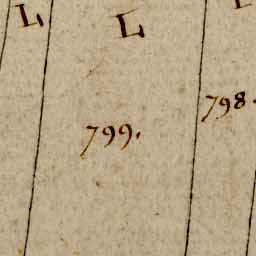 L L
799. 798.